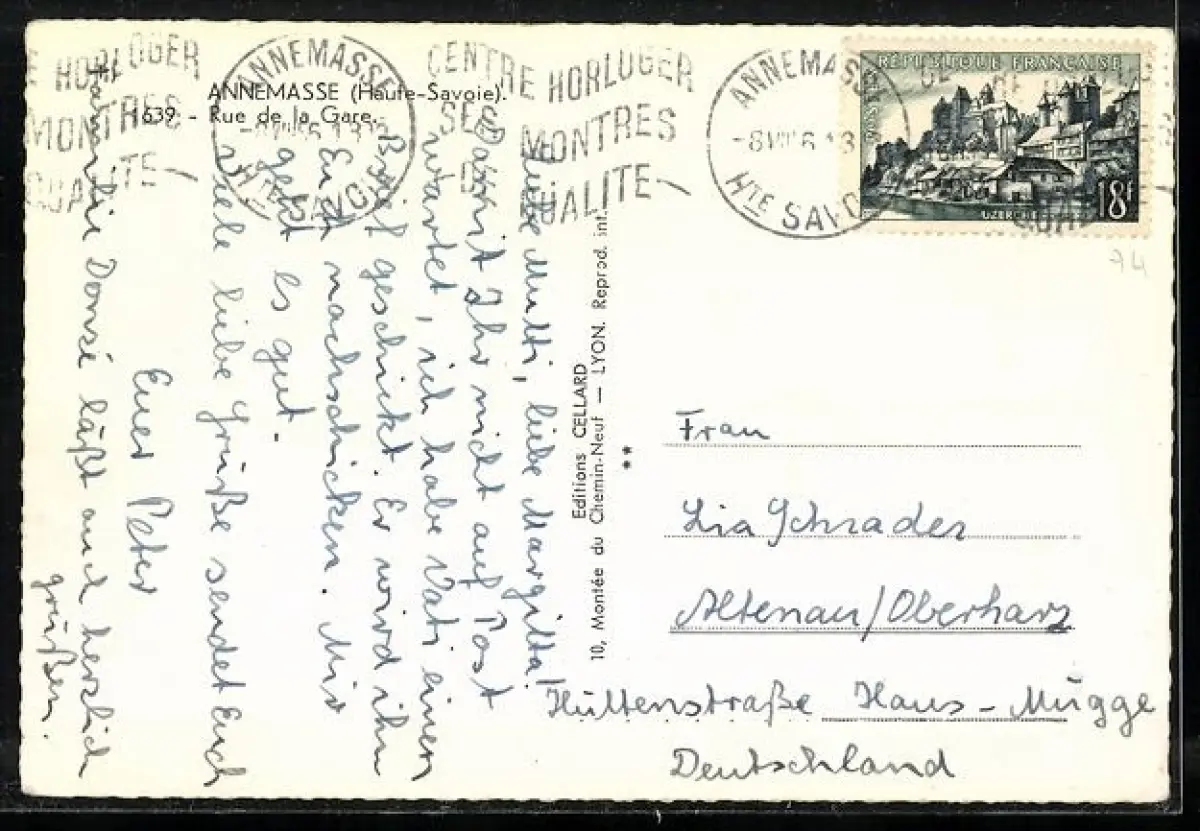 ANNEMASSE (Haute-Savoie).
639 - Rue de la Gare.
Liebe Mutti, liebe Margitta!
Damit Ihr nicht auf Post
wartet, ich habe Vati einen
Brief geschickt. Er wird ihn
Euch nachschicken. Mir
geht es gut.
Viele liebe Grüße sendet Euch
Euer Peter
läßt auch herzlich
grüßen.
Editions CELLARD
10, Montée du Chemin-Neuf — LYON. Reprod. int.
**
CENTRE HORLOGER
SES MONTRES
QUALITE
E HORLOGER
MONTRES
QUALITE
ANNEMASSE
HTE SAVOIE
ANNEMASSE
-8 VIII 6 13
HTE SAVOIE
RÉPUBLIQUE FRANÇAISE
POSTES
UZERCHE
18F
74
Frau
Lia Schrader
Altenau/Oberharz
Hüttenstraße Haus-Mügge
Deutschland